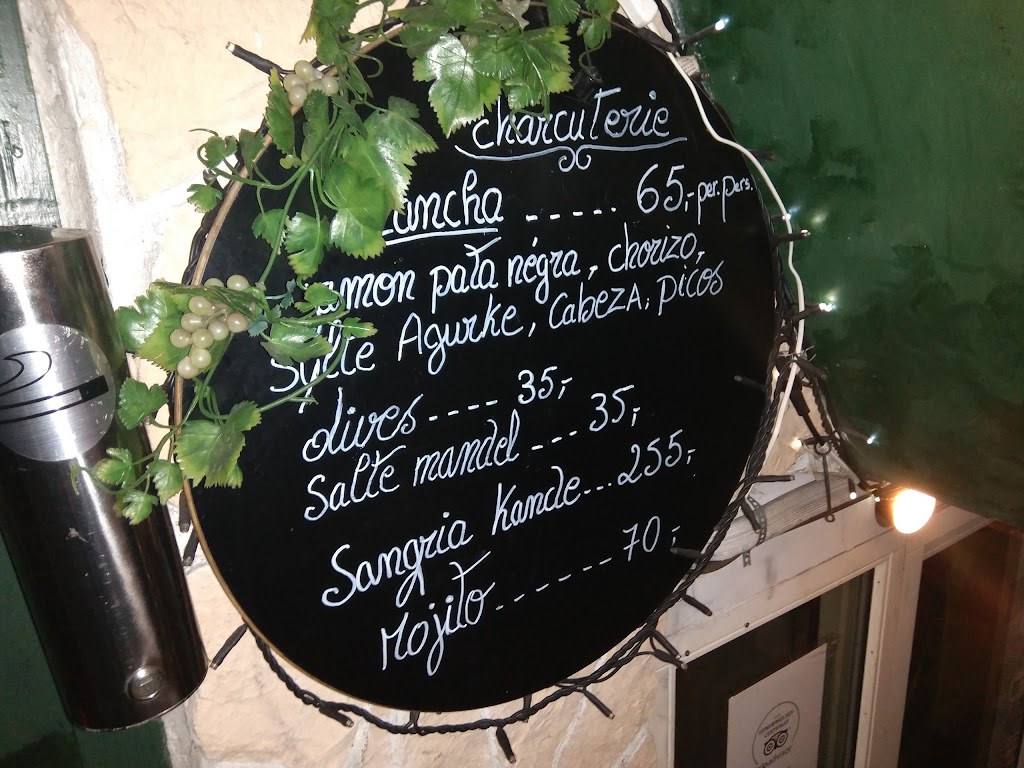 charcuterie
lancha ----- 65,- per.pers.
amon pata négra, chorizo,
Sylte Agurke, CabezA, picos
olives ---- 35,-
Salte mandel --- 35,-
Sangria Kande...255,-
Mojito ------ 70,-